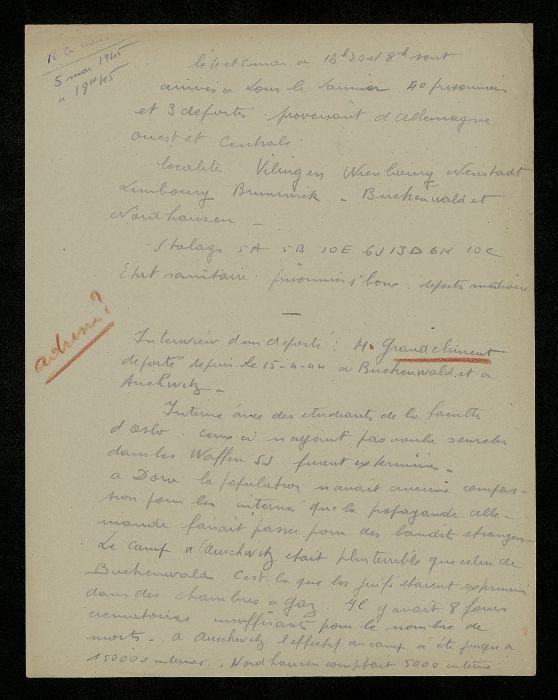 5 mai 1945
a 19H45
le 4 et 5 mai a 16h20 et 8h sont
arrives a Lons le Saunier 40 prisonniers
et 3 deportes provenant d'Allemagne
ouest et Centrale
localité Vilingen Nienbourg Neustadt
Limbourg Brunswick - Buchenwald et
Nordhausen -
Stalags 5A 5B 10E 6J 13D 6K 10C
Etat sanitaire prisonniers bons. deportes mediocre
adresse?
Interview d'un deporté: M. Grandclement
deporte depuis le 15-4-44 a Buchenwald et a
Auchwitz -
Interne avec des etudiants de la faculte
d'Oslo. ceux ci n'ayant pas voulu s'enroler
dans les Waffen SS furent extermines -
a Dora la population n'avait aucune compas-
sion pour les internes que la propagande alle-
mande faisait passer pour des bandits etrangers -
Le camp d'Auschwitz etait plus terrible que celui de
Buchenwald C'est la que les juifs etaient exterminés
dans des chambres a gaz. Il y avait 8 fours
crematoires insuffisants pour le nombre de
morts - a Auschwitz l'effectif du camp a été jusqu'a
150000 internes. Nordhausen comptait 5000 internes